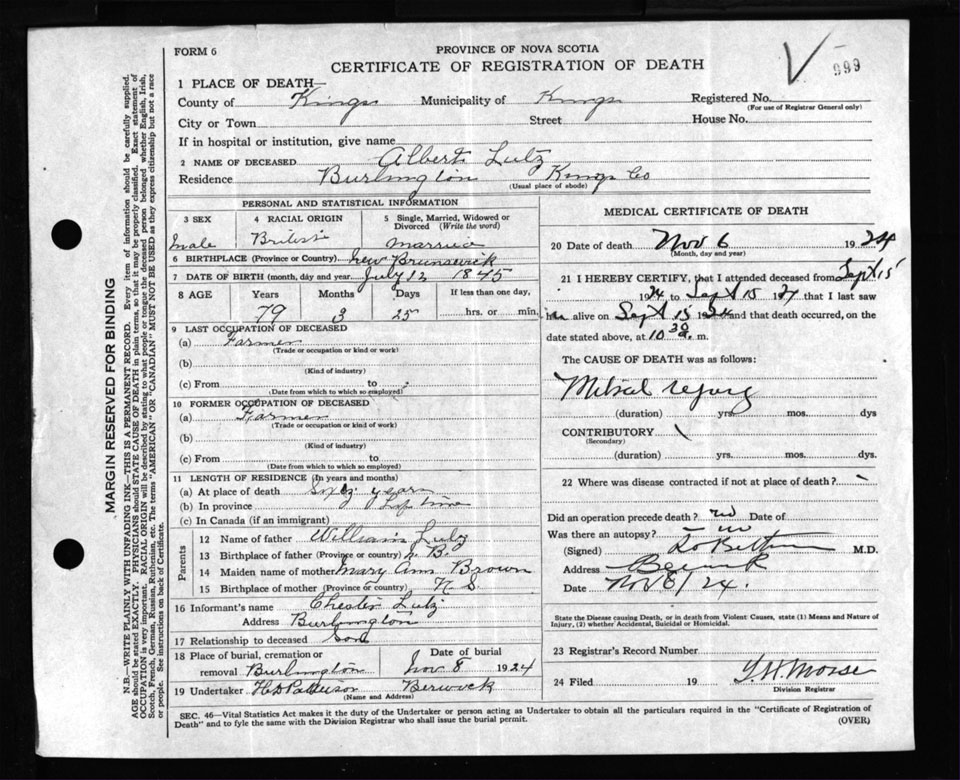 FORM 6
PROVINCE OF NOVA SCOTIA
CERTIFICATE OF REGISTRATION OF DEATH
999
1 PLACE OF DEATH—
County of Kings Municipality of Kings Registered No.
(For use of Registrar General only)
City or Town Street House No.
If in hospital or institution, give name
2 NAME OF DECEASED Albert Lutz
Residence Burlington Kings Co
(Usual place of abode)
PERSONAL AND STATISTICAL INFORMATION
3 SEX 4 RACIAL ORIGIN 5 Single, Married, Widowed or Divorced (Write the word)
male British married
6 BIRTHPLACE (Province or Country) New Brunswick
7 DATE OF BIRTH (month, day and year) July 12 1845
8 AGE Years Months Days If less than one day,
79 3 25 hrs. or min.
9 LAST OCCUPATION OF DECEASED
(a) Farmer
(Trade or occupation or kind or work)
(b)
(Kind of industry)
(c) From to
(Date from which to which so employed)
10 FORMER OCCUPATION OF DECEASED
(a) Farmer
(Trade or occupation or kind of work)
(b)
(Kind of industry)
(c) From to
(Date from which to which so employed)
11 LENGTH OF RESIDENCE (in years and months)
(a) At place of death Sixty years
(b) In province Life time
(c) In Canada (if an immigrant)
Parents
12 Name of father William Lutz
13 Birthplace of father (Province or country) N. B.
14 Maiden name of mother Mary Ann Brown
15 Birthplace of mother (Province or country) N. S.
16 Informant's name Chester Lutz
Address Burlington
17 Relationship to deceased Son
18 Place of burial, cremation or removal Burlington Date of burial Nov 8 1924
19 Undertaker H D Patterson Berwick
(Name and Address)
MEDICAL CERTIFICATE OF DEATH
20 Date of death Nov 6 1924
(Month, day and year)
21 I HEREBY CERTIFY, that I attended deceased from Sept 15
1924 to Sept 15 1924 that I last saw
him alive on Sept 15 1924 and that death occurred, on
date stated above, at 10 30 a. m.
The CAUSE OF DEATH was as follows:
Mitral regurg
(duration) yrs. mos. dys
CONTRIBUTORY
(Secondary)
(duration) yrs. mos. dys.
22 Where was disease contracted if not at place of death?
Did an operation precede death? no Date of
Was there an autopsy? no
(Signed) M.D.
Address Berwick
Date Nov 8/24.
State the Disease causing Death, or in death from Violent Causes, state (1) Means and Nature of Injury, (2) whether Accidental, Suicidal or Homicidal.
23 Registrar's Record Number
24 Filed 19 Morse
Division Registrar
SEC. 46—Vital Statistics Act makes it the duty of the Undertaker or person acting as Undertaker to obtain all the particulars required in the "Certificate of Registration of
Death" and to fyle the same with the Division Registrar who shall issue the burial permit. (OVER)
MARGIN RESERVED FOR BINDING
N.B.—WRITE PLAINLY WITH UNFADING INK—THIS IS A PERMANENT RECORD. Every item of information should be carefully supplied.
AGE should be stated EXACTLY. PHYSICIANS should STATE CAUSE OF DEATH in plain terms, so that it may be properly classified. Exact statement of
OCCUPATION is very important. RACIAL ORIGIN will be described by stating to what people or tongue the deceased person belonged whether English, Irish,
Scotch, French, German, Russian, Ruthenian, etc. The terms "AMERICAN" OR "CANADIAN" MUST NOT BE USED as they express citizenship but not a race
or people. See instructions on back of Certificate.